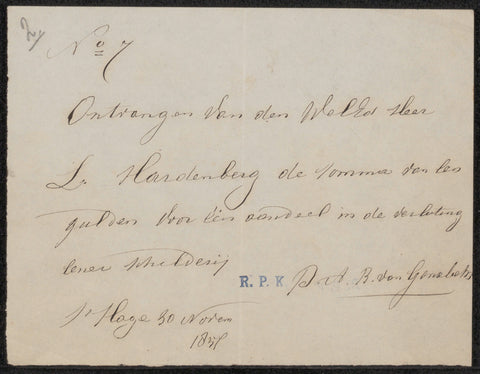 2/
No 7
Ontvangen van den WelEd Heer
L. Hardenberg de somma van tien
gulden voor één aandeel in de verloting
eener schilderij
R. P. K
P. A. B. van
s'Hage 30 Novem